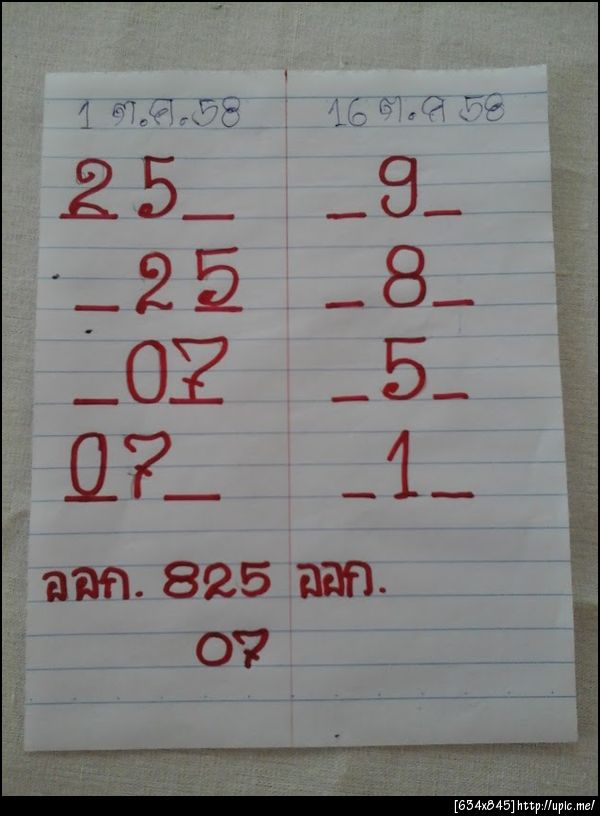 1 ต.ค.58
25_
_25
_07
07_
ออก. 825
07
16 ต.ค 58
_9_
_8_
_5_
_1_
ออก.
[634x845]http://upic.me/